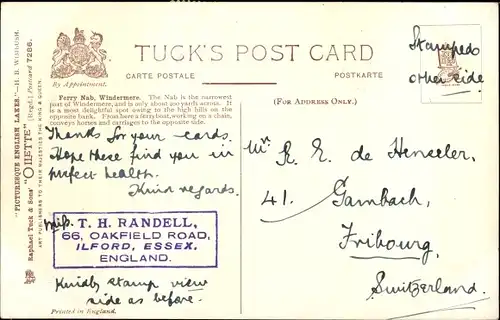 TUCK'S POST CARD
By Appointment.
CARTE POSTALE
POSTKARTE
Ferry Nab, Windermere. The Nab is the narrowest
part of Windermere, and is only about 200 yards across. It
is a most delightful spot owing to the high hills on the
opposite bank. From here a ferry boat, working on a chain,
conveys horses and carriages to the opposite side.
(FOR ADDRESS ONLY.)
Stamped
other side
Thanks for your cards.
Hope these find you in
perfect health.
Kind regards.
Miss T. H. RANDELL,
66, OAKFIELD ROAD,
ILFORD, ESSEX,
ENGLAND.
Kindly stamp view
side as before.
Printed in England.
Mr R. E. de Henseler,
41. Gambach,
Fribourg,
Switzerland.
"PICTURESQUE ENGLISH LAKES."—
Raphael Tuck & Sons' "OILETTE" (Regd.) Postcard 7286.
ART PUBLISHERS TO THEIR MAJESTIES THE KING & QUEEN.